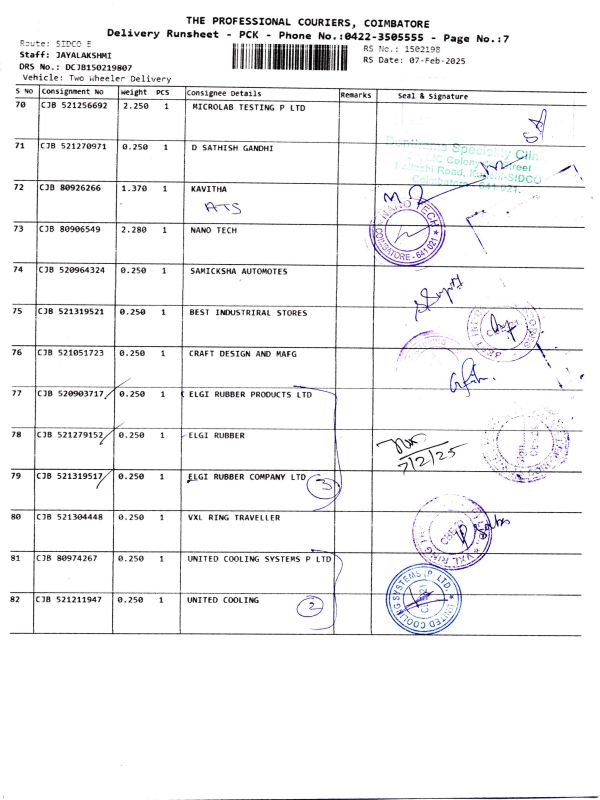 THE PROFESSIONAL COURIERS, COIMBATORE
Delivery Runsheet - PCK - Phone No.:0422-3505555 - Page No.:7
Route: SIDCO E
RS No.: 1502198
Staff: JAYALAKSHMI
RS Date: 07-Feb-2025
DRS No.: DCJB150219807
Vehicle: Two Wheeler Delivery
S No Consignment No Weight PCS Consignee Details Remarks Seal & Signature
70 CJB 521256692 2.250 1 MICROLAB TESTING P LTD
71 CJB 521270971 0.250 1 D SATHISH GANDHI
Specialty Clinic
LIC Colony Street
Road, SIDCO
Coimbatore - 641 021.
72 CJB 80926266 1.370 1 KAVITHA
ATS
73 CJB 80906549 2.280 1 NANO TECH
NANO TECH
COIMBATORE - 641 021
74 CJB 520964324 0.250 1 SAMICKSHA AUTOMOTES
75 CJB 521319521 0.250 1 BEST INDUSTRIRAL STORES
76 CJB 521051723 0.250 1 CRAFT DESIGN AND MAFG
77 CJB 520903717 0.250 1 ELGI RUBBER PRODUCTS LTD
78 CJB 521279152 0.250 1 ELGI RUBBER
7/2/25
79 CJB 521319517 0.250 1 ELGI RUBBER COMPANY LTD
3
80 CJB 521304448 0.250 1 VXL RING TRAVELLER
VXL RING
81 CJB 80974267 0.250 1 UNITED COOLING SYSTEMS P LTD
82 CJB 521211947 0.250 1 UNITED COOLING
2
UNITED COOLING SYSTEMS P LTD